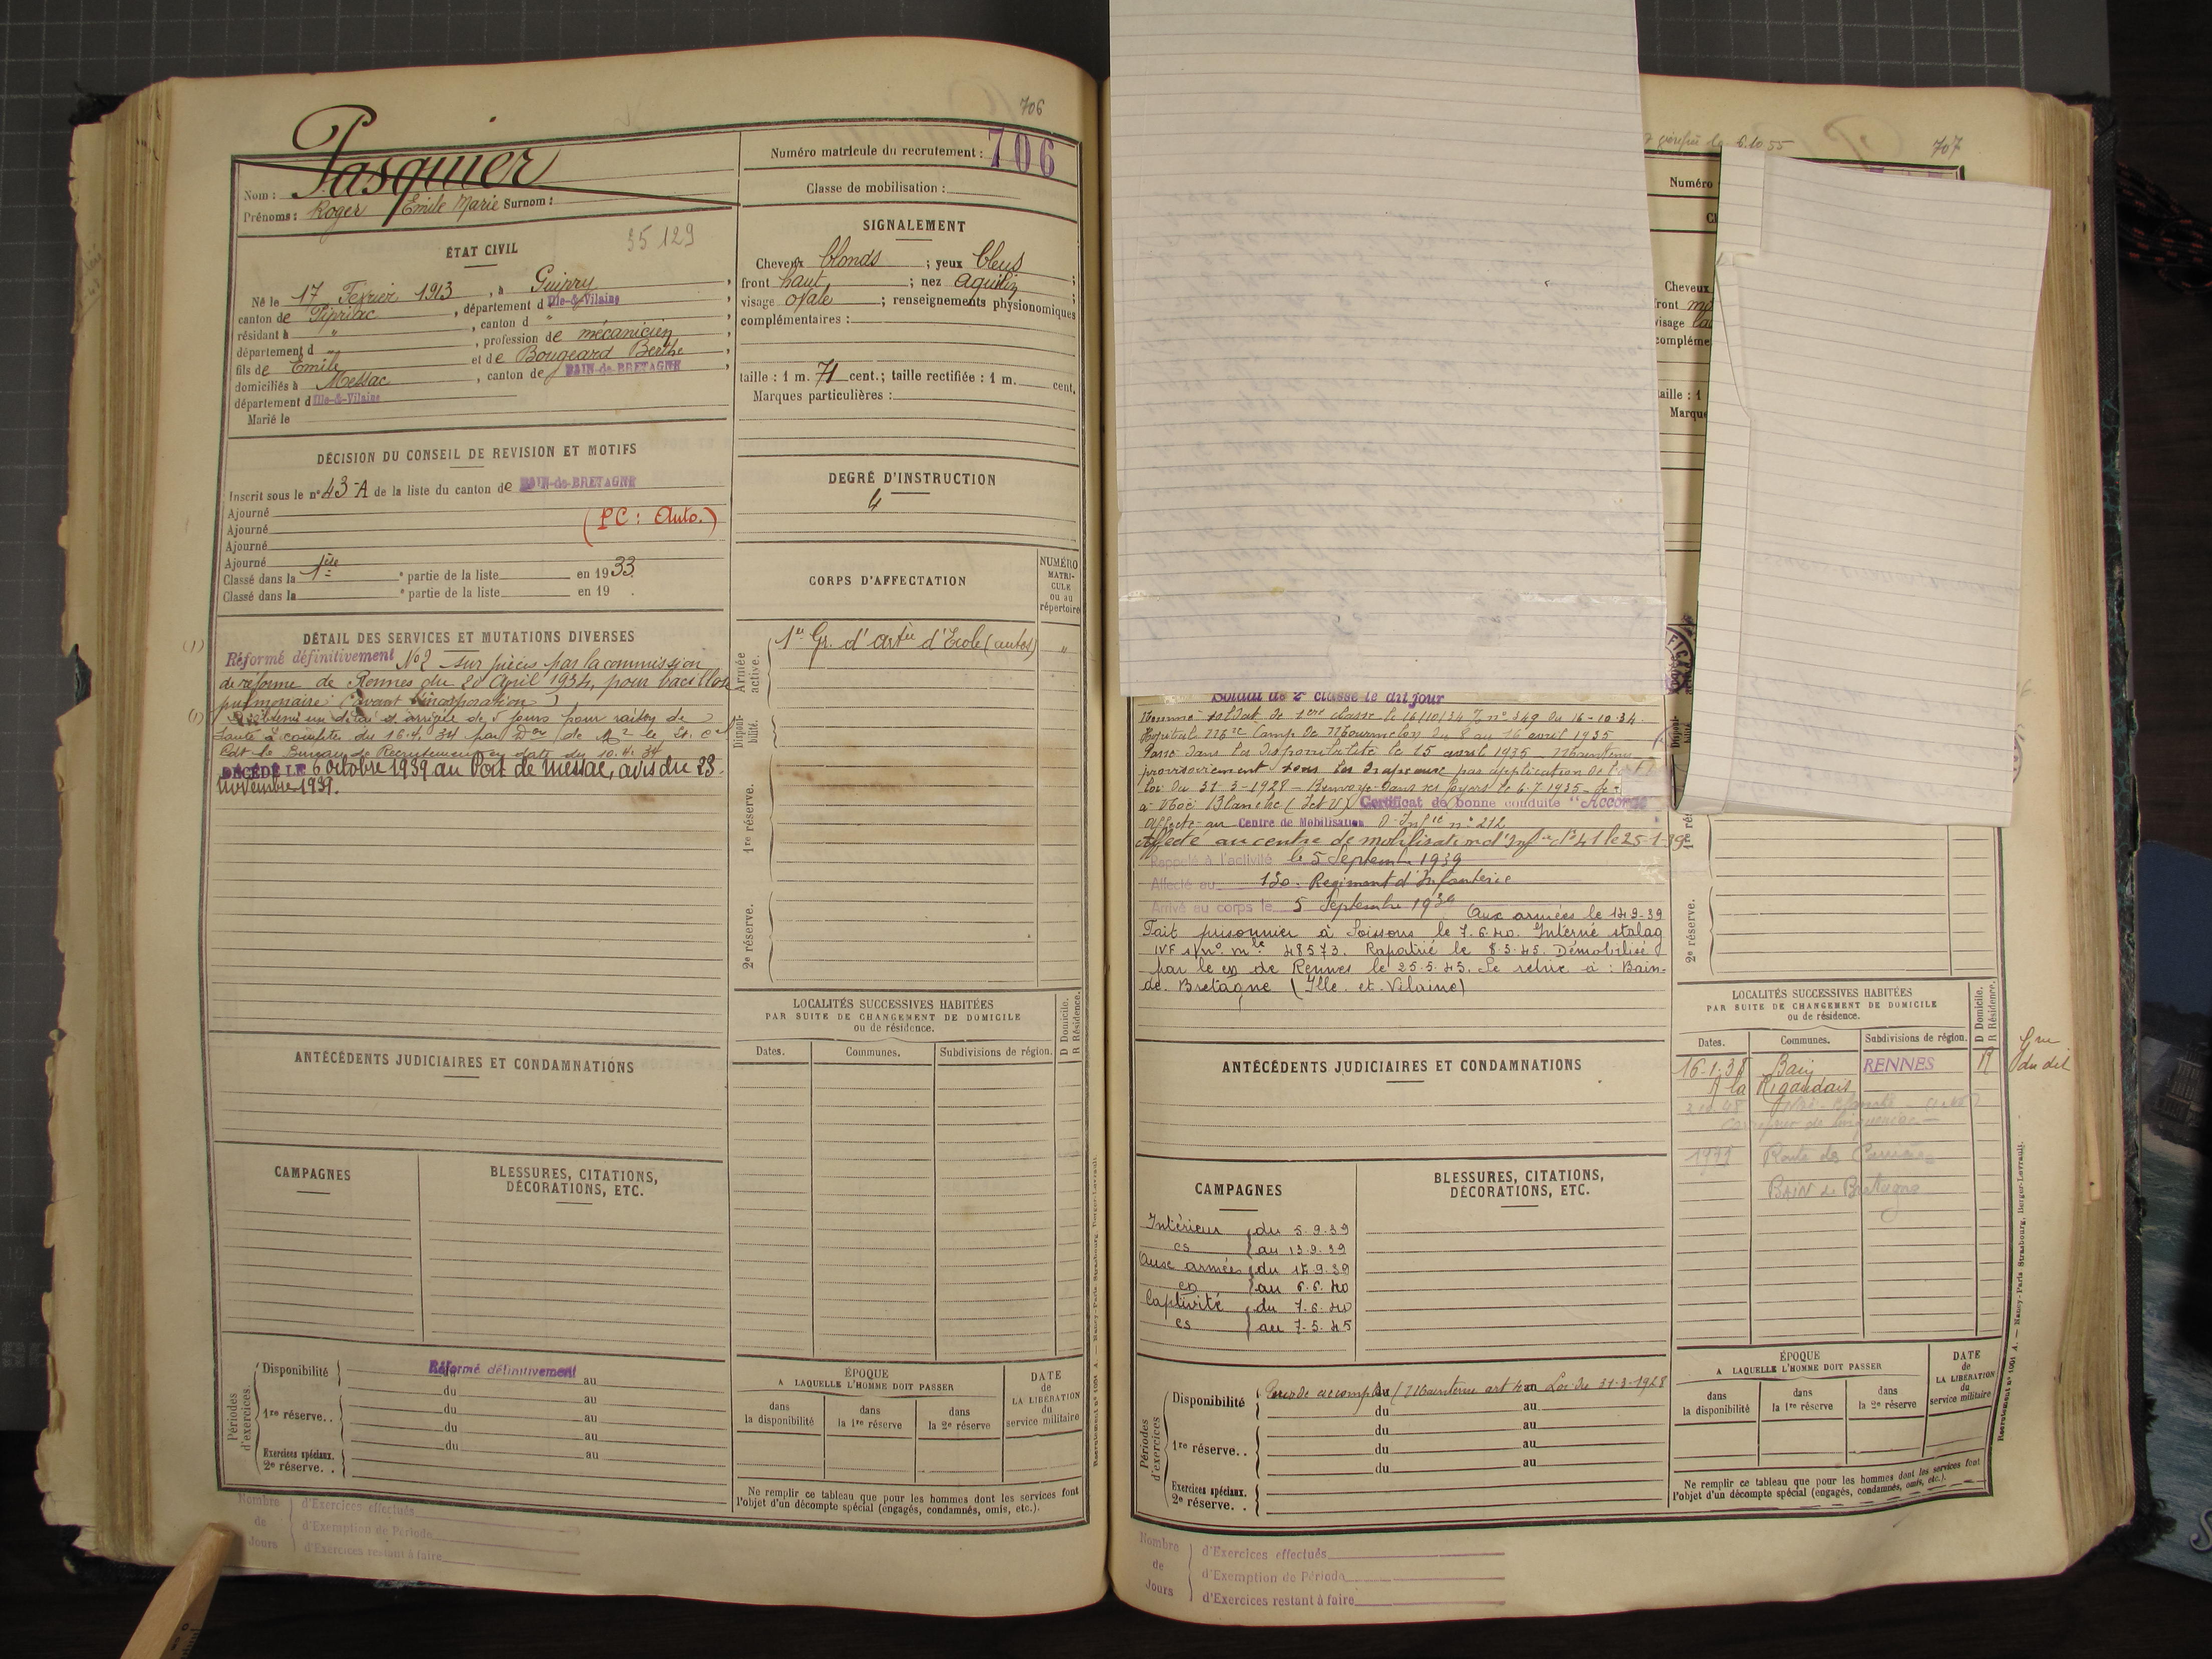 706
Pasquier
Nom :
Prénoms : Roger Emile Marie Surnom :
Numéro matricule du recrutement : 706
Classe de mobilisation :
ÉTAT CIVIL
35 129
Né le 17 Fevrier 1913, à Guipry,
canton de Pipriac, département d Ille-&-Vilaine,
résidant à ", canton d ",
département d ", profession de mécanicien,
fils de Emile et de Bougeard Berthe,
domiciliés à Messac, canton de BAIN-de-BRETAGNE,
département d Ille-&-Vilaine
Marié le
SIGNALEMENT
Cheveux blonds ; yeux bleus ;
front haut ; nez aquilin ;
visage ovale ; renseignements physionomiques
complémentaires :
taille : 1 m. 71 cent.; taille rectifiée : 1 m. cent.
Marques particulières :
DÉCISION DU CONSEIL DE REVISION ET MOTIFS
Inscrit sous le n° 43-A de la liste du canton de BAIN-de-BRETAGNE
Ajourné
Ajourné (PC : Auto.)
Ajourné
Ajourné
Classé dans la 1ère partie de la liste en 1933.
Classé dans la ° partie de la liste en 19 .
DEGRÉ D'INSTRUCTION
4
CORPS D'AFFECTATION
NUMÉRO MATRI-CULE ou au répertoire
Armée active.
1er Gr. d'artie d'Ecole (autos) "
Disponi-bilité.
1re réserve.
2e réserve.
DÉTAIL DES SERVICES ET MUTATIONS DIVERSES
(1) Réformé définitivement No 2 sur pièces par la commission
de réforme de Rennes du 20 April 1934, pour bacillose
pulmonaire (avant incorporation)
(1) obtenu un délai d'arrivée de 5 jours pour raison de
santé à compter du 16.4.34 par Don de Mr le Lt. Cel
Cdt le Bureau de Recrutement en date du 10.4.34
DÉCÉDÉ LE 6 octobre 1939 au Port de Messac, avis du 23
novembre 1939.
ANTÉCÉDENTS JUDICIAIRES ET CONDAMNATIONS
LOCALITÉS SUCCESSIVES HABITÉES
PAR SUITE DE CHANGEMENT DE DOMICILE
ou de résidence.
D Domicile.
R Résidence.
Dates. Communes. Subdivisions de région.
CAMPAGNES
BLESSURES, CITATIONS,
DÉCORATIONS, ETC.
Périodes d'exercices.
Disponibilité Réformé définitivement du au
du au
1re réserve.. du au
du au
Exercices spéciaux. du au
2e réserve. .
ÉPOQUE
A LAQUELLE L'HOMME DOIT PASSER
dans la disponibilité
dans la 1re réserve
dans la 2e réserve
DATE de LA LIBÉRATION du service militaire
Ne remplir ce tableau que pour les hommes dont les services font
l'objet d'un décompte spécial (engagés, condamnés, omis, etc.).
Nombre de Jours
d'Exercices effectués
d'Exemption de Période
d'Exercices restant à faire
le 6.10.55
707
Numéro
Cheveux
front
visage
complém
taille : 1
Marqu
Soldat de 2e classe le dit jour
Nommé soldat de 1ere classe le 16/10/34 n° 349 du 16-10-34.
Hopital Mre Camp de Mourmelon du 8 au 16 avril 1935
Passé dans la disponibilité le 15 avril 1935 Maintenu
provisoirement sous les drapeaux par application de la
loi du 31-3-1928 - Renvoyé dans ses foyers le 6.7.1935 - Se
à Noë Blanche (I et V) Certificat de bonne conduite "Accordé
Affecté au Centre de Mobilisation d'Infie n° 212
Affecté au centre de mobilisation d'Infie n° 41 le 25-1-39
Rappelé à l'activité le 5 Septembre 1939
Affecté au 130. Regiment d'Infanterie
Arrivé au corps le 5 Septembre 1939 Aux armées le 14 9-39
Fait prisonnier à Soissons le 7.6.40. Interné stalag
IVF s/n° mle 48573. Rapatrié le 8.5.45. Démobilisé
par le CD de Rennes le 25.5.45. Se retire à : Bain-
de Bretagne (Ille. et. Vilaine)
1re rés
2e réserve.
ANTÉCÉDENTS JUDICIAIRES ET CONDAMNATIONS
LOCALITÉS SUCCESSIVES HABITÉES
PAR SUITE DE CHANGEMENT DE DOMICILE
ou de résidence.
D Domicile.
R Résidence.
Dates. Communes. Subdivisions de région.
16-1-38 Bain RENNES R
A la Rigaudais
du dit
Route des
Bain de Bretagne
CAMPAGNES
Intérieur du 5.9.39
CS au 13.9.39
Aux armées du 14.9.39
CD au 6.6.40
Captivité du 7.6.40
CS au 7.5.45
BLESSURES, CITATIONS,
DÉCORATIONS, ETC.
Périodes d'exercices
Disponibilité accomplie (Maintenu art 4 Loi du 31-3-1928
du au
du au
1re réserve.. du au
du au
Exercices spéciaux.
2e réserve. .
ÉPOQUE
A LAQUELLE L'HOMME DOIT PASSER
dans la disponibilité
dans la 1re réserve
dans la 2e réserve
DATE de LA LIBÉRATION du service militaire
Ne remplir ce tableau que pour les hommes dont les services font
l'objet d'un décompte spécial (engagés, condamnés, omis, etc.).
Nombre de Jours
d'Exercices effectués
d'Exemption de Période
d'Exercices restant à faire